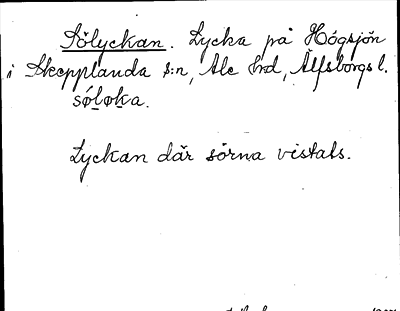 Sölyckan. Lycka på Högsjön
i Skepplanda s:n, Ale hrd, Älfsborgs l.
søloka.
Lyckan där sörna vistats.